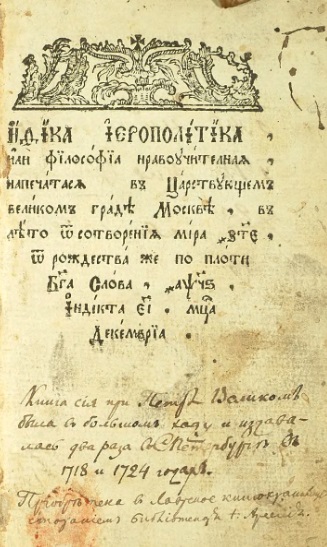 Іѳіка ієрополітіка
или філософіа нравоучителная
напечатася въ Царствующемъ
великомъ градѣ Москвѣ въ
лѣто ѿ сотворенія міра
ѿ рождества же по плоти
Бга Слова ҂аѱч҃ѕ
індікта еі мца
Декемвріа
Книга сія при Петрѣ Великомъ
была в большомъ ходу и издава-
лась два раза в СПетербургѣ въ
1718 и 1724 годахъ.
Пріобрѣтена в Лаврское книгохранилище